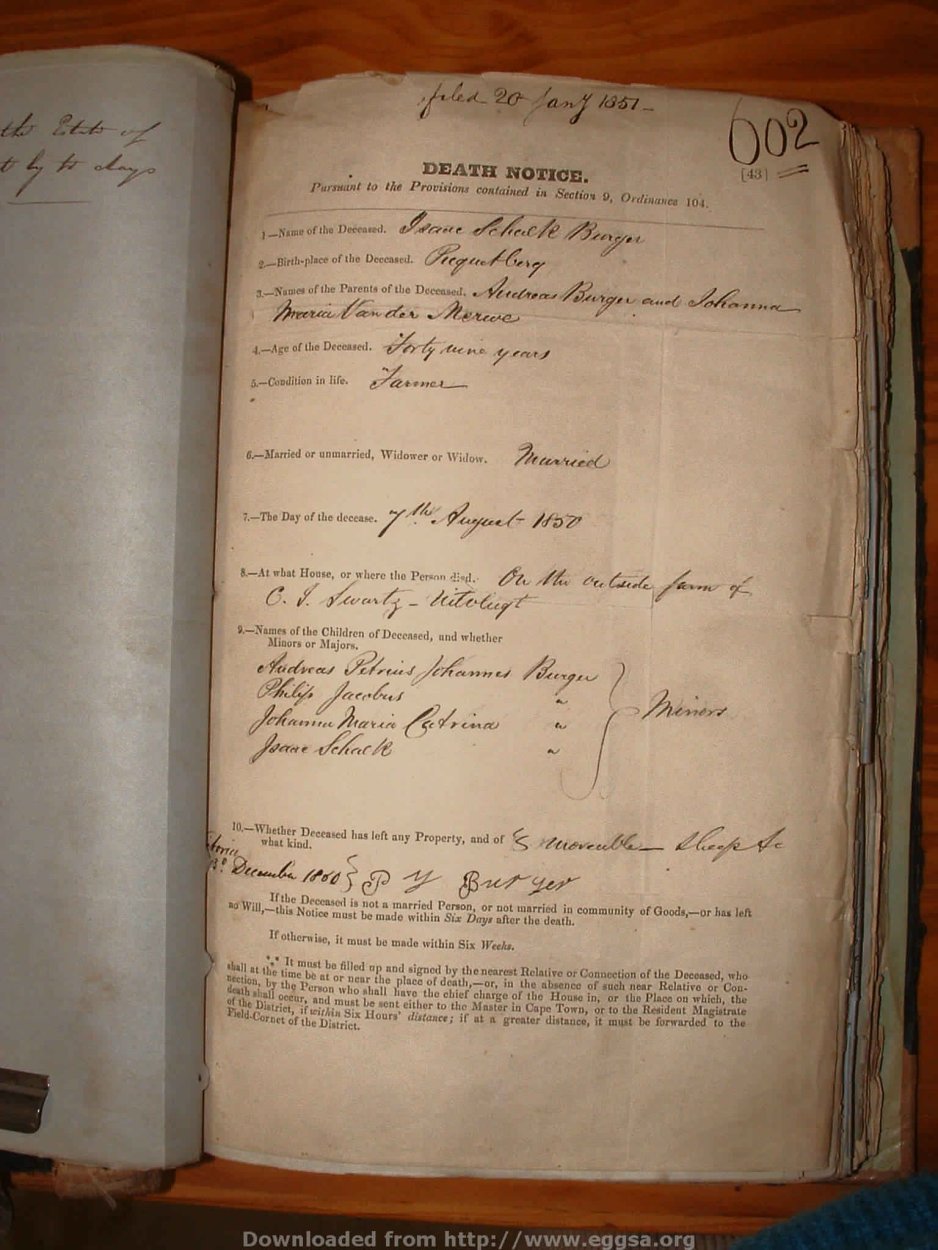 the Estate of
by
days
filed 20 Jany 1851
602
[43]
DEATH NOTICE.
Pursuant to the Provisions contained in Section 9, Ordinance 104.
1—Name of the Deceased. Isaac Schalk Burger
2.—Birth-place of the Deceased. Picquetberg
3.—Names of the Parents of the Deceased. Andreas Burger and Johanna
Maria Van der Merwe
4.—Age of the Deceased. Forty nine years
5.—Condition in life. Farmer
6.—Married or unmarried, Widower or Widow. Married
7.—The Day of the decease. 7th August 1850
8.—At what House, or where the Person died. On the outside farm of
C. J. Swartz – Uitvlugt
9.—Names of the Children of Deceased, and whether
Minors or Majors.
Andreas Petrus Johannes Burger
Philip Jacobus "
Johanna Maria Catrina "
Isaac Schalk "
Minors
10.—Whether Deceased has left any Property, and of
what kind. moveable – sheep &c
December 1850 P Burger
If the Deceased is not a married Person, or not married in community of Goods,—or has left
no Will,—this Notice must be made within Six Days after the death.
If otherwise, it must be made within Six Weeks.
*** It must be filled up and signed by the nearest Relative or Connection of the Deceased, who
shall at the time be at or near the place of death,—or, in the absence of such near Relative or Con-
nection, by the Person who shall have the chief charge of the House in, or the Place on which, the
death shall occur, and must be sent either to the Master in Cape Town, or to the Resident Magistrate
of the District, if within Six Hours' distance; if at a greater distance, it must be forwarded to the
Field-Cornet of the District.
Downloaded from http://www.eggsa.org